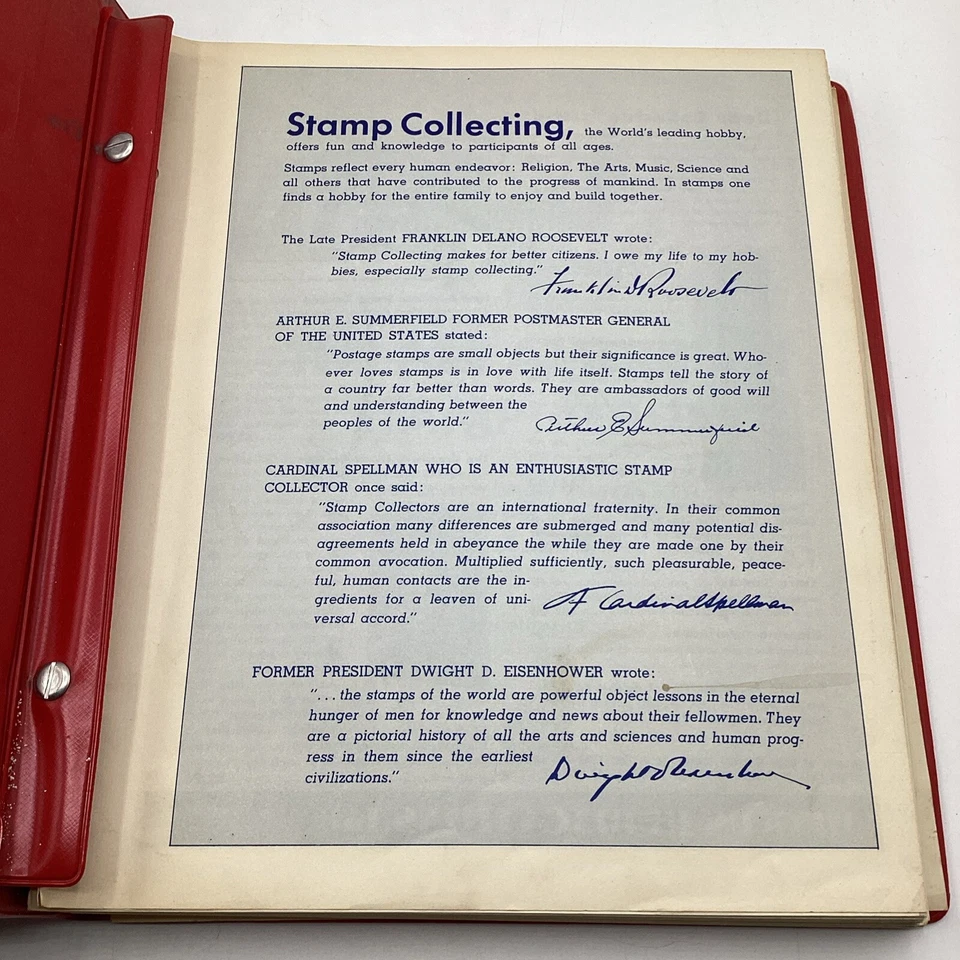 Stamp Collecting, the World's leading hobby,
offers fun and knowledge to participants of all ages.
Stamps reflect every human endeavor: Religion, The Arts, Music, Science and
all others that have contributed to the progress of mankind. In stamps one
finds a hobby for the entire family to enjoy and build together.
The Late President FRANKLIN DELANO ROOSEVELT wrote:
"Stamp Collecting makes for better citizens. I owe my life to my hob-
bies, especially stamp collecting."
Franklin D Roosevelt
ARTHUR E. SUMMERFIELD FORMER POSTMASTER GENERAL
OF THE UNITED STATES stated:
"Postage stamps are small objects but their significance is great. Who-
ever loves stamps is in love with life itself. Stamps tell the story of
a country far better than words. They are ambassadors of good will
and understanding between the
peoples of the world."
Arthur E Summerfield
CARDINAL SPELLMAN WHO IS AN ENTHUSIASTIC STAMP
COLLECTOR once said:
"Stamp Collectors are an international fraternity. In their common
association many differences are submerged and many potential dis-
agreements held in abeyance the while they are made one by their
common avocation. Multiplied sufficiently, such pleasurable, peace-
ful, human contacts are the in-
gredients for a leaven of uni-
versal accord."
F Cardinal Spellman
FORMER PRESIDENT DWIGHT D. EISENHOWER wrote:
"...the stamps of the world are powerful object lessons in the eternal
hunger of men for knowledge and news about their fellowmen. They
are a pictorial history of all the arts and sciences and human prog-
ress in them since the earliest
civilizations."
Dwight D Eisenhower